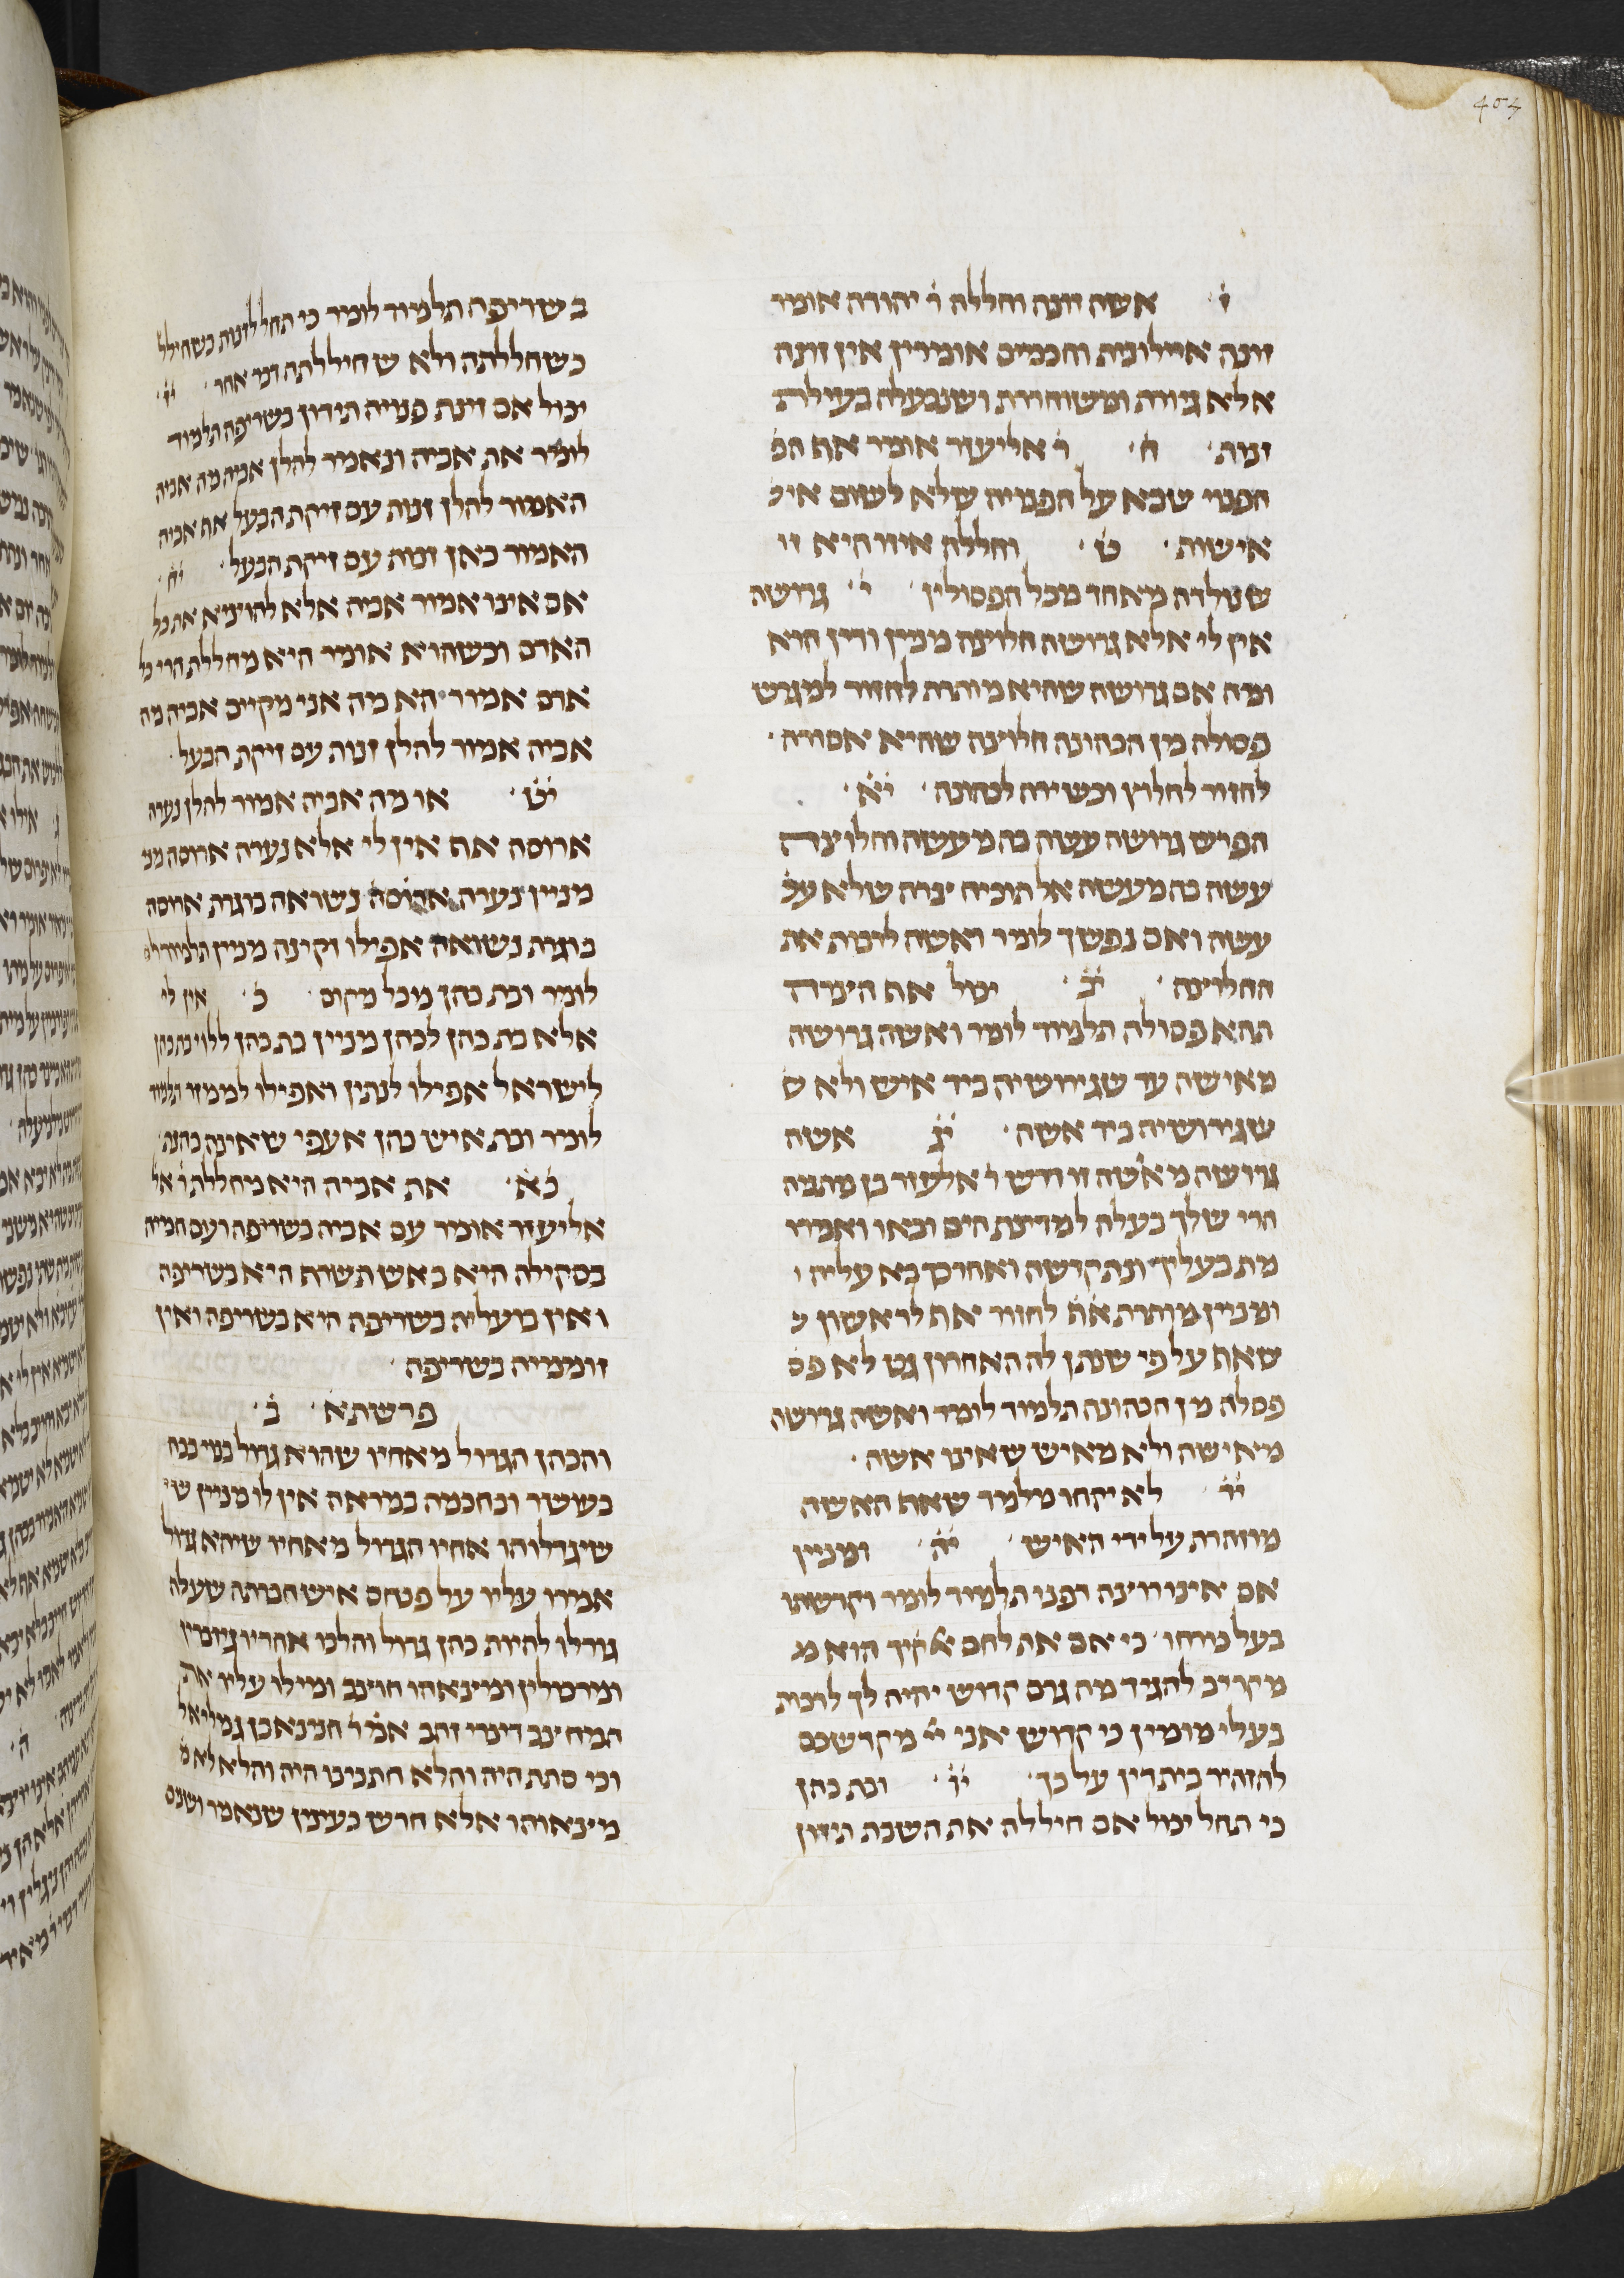 404
ז׳ אשה זונה וחללה ר׳ יהודה אומר
זונה איילונית וחכמים אומרין אין זונה
אלא גיורת ומשוחררת ושנבעלה בעילת
זנות ח׳ ר׳ אליעזר אומר אף הפ
הפנוי שבא על הפנויה שלא לשום אי׳
אישות ט׳ וחללה איזו היא זו
שנולדה מאחד מכל הפסולין י׳ גרושה
אין לי אלא גרושה חלוצה מניין ודין הוא
ומה אם גרושה שהיא מותרת לחזור למגרש
פסולה מן הכהונה חלוצה שהיא אסורה
לחזור לחלוץ וכשירה לכהונה יא׳
הפרש גרושה עשה בה מעשה וחלוצה
עשה בה מעשה אל תוכיח צרה שלא ע׳
עשה ואם נפשך לומר ואשה לרבות את
החלוצה יב׳ יכול אף הצרה
תהא פסולה תלמוד לומר ואשה גרושה
מאישה עד שגירושיה ביד איש ולא ש
שגירושיה ביד אשה יג אשה
גרושה מאשה זו דרש ר׳ אלעזר בן מתיה
הרי שלך בעלה למדינת הים ובאו ואמרו
מת בעליך ונתקדשה ואחר כך בא עליה ו
ומניין מותרת את לחזור אף לראשון ש
שאף על פי שנתן לה האחרון גט לא פס
פסלה מן הכהונה תלמוד לומר ואשה גרושה
מאישה ולא מאיש שאינו אשה
יד׳ לא יקחו מלמד שאת האשה
מוזהרת על ידי האיש יה׳ ומניין
אם אינו רוצה דפנו תלמוד לומר וקדשתו
בעל כורחו כי אם את לחם אלקיך הוא מ
מקריב להגיד מה גרם קדוש יהיה לך לרבות
בעלי מומין כי קדוש אני יי מקדשכם
להזהיר בית דין על כך יו׳ ובת כהן
כי תחל יכול אם חיללה את השבת תידון
בשריפה תלמוד לומר כי תחל לזנות כשחילל
כשחללתה ולא שחיללתה דבר אחר יז׳
יכול אם זינת פנויה תידון בשריפה תלמוד
לומר את אביה ונאמר להלן אביה מה אביה
האמור להלן זנות עם זיקת הבעל אף אביה
האמור כאן זנות עם זיקת הבעל יח׳
אם אינו אמור אביה אלא להוציא את כל
האדם וכשהוא אומר היא מחללת הרי כל
אדם אמור הא מה אני מקיים אביה מה
אביה אמור להלן זנות עם זיקת הבעל
יט׳ או מה אביה אמור להלן נערה
ארוסה אף אין לי אלא נערה ארוסה מנ
מניין נערה ארוסה נשואה בוגרת ארוסה
בוגרת נשואה אפילו זקינה מניין תלמוד לו
לומר ובת כהן מכל מקום כ׳ אין לי
אלא בת כהן לכהן מניין בת כהן ללוי בת כהן
לישראל אפילו לנתין ואפילו לממזר תלמוד
לומר ובת איש כהן אעפי שאינה כהנת
כא׳ את אביה היא מחללת ר׳ אל
אליעזר אומר עם אביה בשריפה ועם חמיה
בסקילה היא באש תשרף היא בשריפה
ואין בועליה בשריפה היא בשריפה ואין
זוממיה בשריפה
פרשתא ב׳
והכהן הגדול מאחיו שהוא גדול בנוי בכח
בעושר ובחכמה במראה אין לו מניין ש׳
שיגדלוהו אחיו הגדול מאחיו שיהא גדול
אמרו עליו על פנחס איש חבתה שעלה
גורלו להיות כהן גדול והלכו אחריו גיזברין
ומרכולין ומצאוהו חוצב ומילו עליו את
המחצב דינרי זהב אמ׳ ר׳ חנינא בן גמליאל
וכי סתת היה והלא חתנינו היה והלא לא מ
מצאוהו אלא חרש כעינין שנאמר ושנים